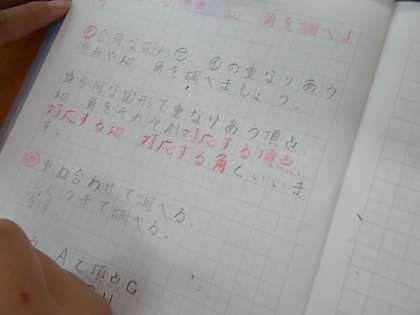 頂点 辺、角を調べよ
う
合同な図形㋐、㋑の重なりあう
頂点や辺、角を調べましょう。
合同な図形で重なりあう頂点
辺、角をそれぞれ対応する頂点、
対応する辺 対応する角といいま
す。
重ね合わせて調べる。
て調べる。
Aと頂点G